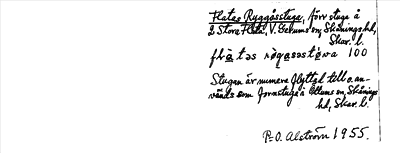 Flatas Ryggåsstuga, förr stuga å
2 Stora Flata, V. Gerums sn, Skånings hd,
Skar. l.
100
Stugan är numera flyttad till o. an-
vänds som fornstuga i Ottums sn, Skånings
hd, Skar. l.
P.O. Alström 1955.